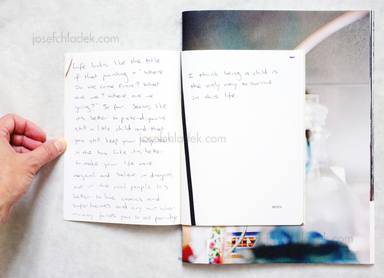 josefchladek.com
Life looks like the title
of that painting: "where
do we come from? What
are we? where are we
going?" So far. Seems like
it's better to pretend you're
still a little child and that
you still keep your
in the box. Like it's better
to make your life more
magical and believe in dragons
not in the real people. It's
better to love comics and
superheroes and cry out when
mommy
I think being a child is
the only way to survive
in this life.
josefchladek.com
josefchladek.com